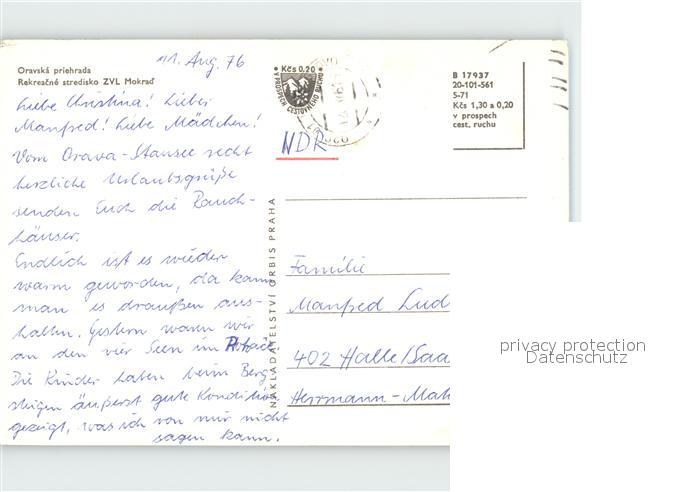 Oravská priehrada
Rekreačné stredisko ZVL Mokraď
11. Aug. 76
Liebe Christina! Lieber
Manfred! Liebe Mädchen!
Vom Orava-Stausee recht
herzliche Urlaubsgrüße
senden Euch die Rauch-
häuser.
Endlich ist es wieder
warm geworden, da kann
man es draußen aus-
halten. Gestern waren wir
an den vier Seen im
Die Kinder haben beim Berg-
steigen äußerst gute Kondition
gezeigt, was ich von mir nicht
sagen kann.
NAKLADATELSTVÍ ORBIS PRAHA
Kčs 0.20
V PROSPECH CESTOVNÉHO RUCHU
NDR
B 17937
20-101-561
5-71
Kčs 1,30 a 0,20
v prospech
cest. ruchu
Familie
Manfred Lud
402 Halle/Saa
Herrmann-Mah
privacy protection
Datenschutz